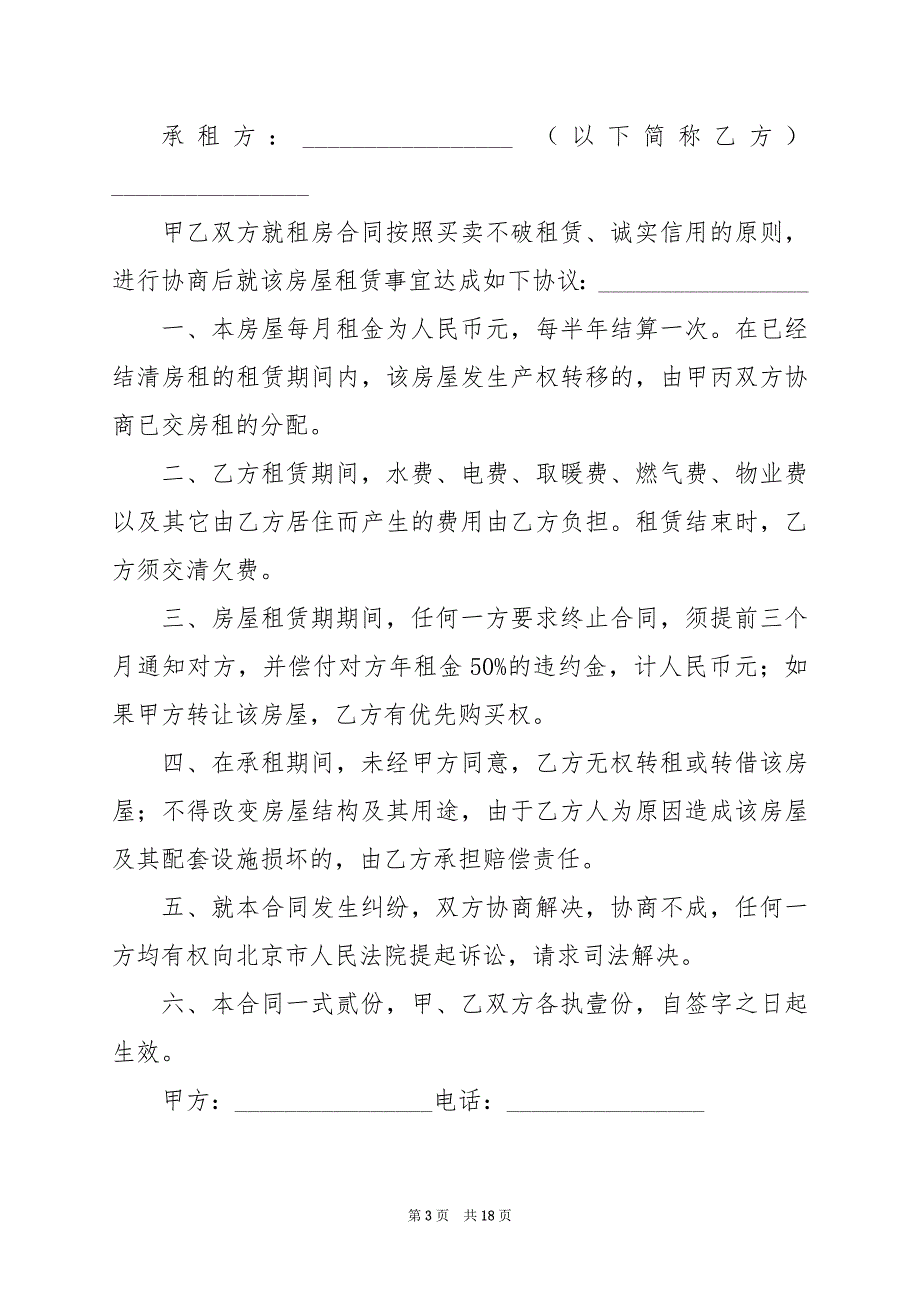 承租方：_________________（以下简称乙方）
________________
甲乙双方就租房合同按照买卖不破租赁、诚实信用的原则，
进行协商后就该房屋租赁事宜达成如下协议：_________________
一、本房屋每月租金为人民币元，每半年结算一次。在已经
结清房租的租赁期间内，该房屋发生产权转移的，由甲丙双方协
商已交房租的分配。
二、乙方租赁期间，水费、电费、取暖费、燃气费、物业费
以及其它由乙方居住而产生的费用由乙方负担。租赁结束时，乙
方须交清欠费。
三、房屋租赁期期间，任何一方要求终止合同，须提前三个
月通知对方，并偿付对方年租金50%的违约金，计人民币元；如
果甲方转让该房屋，乙方有优先购买权。
四、在承租期间，未经甲方同意，乙方无权转租或转借该房
屋；不得改变房屋结构及其用途，由于乙方人为原因造成该房屋
及其配套设施损坏的，由乙方承担赔偿责任。
五、就本合同发生纠纷，双方协商解决，协商不成，任何一
方均有权向北京市人民法院提起诉讼，请求司法解决。
六、本合同一式贰份，甲、乙双方各执壹份，自签字之日起
生效。
甲方：________________电话：________________
第 3 页 共 18 页